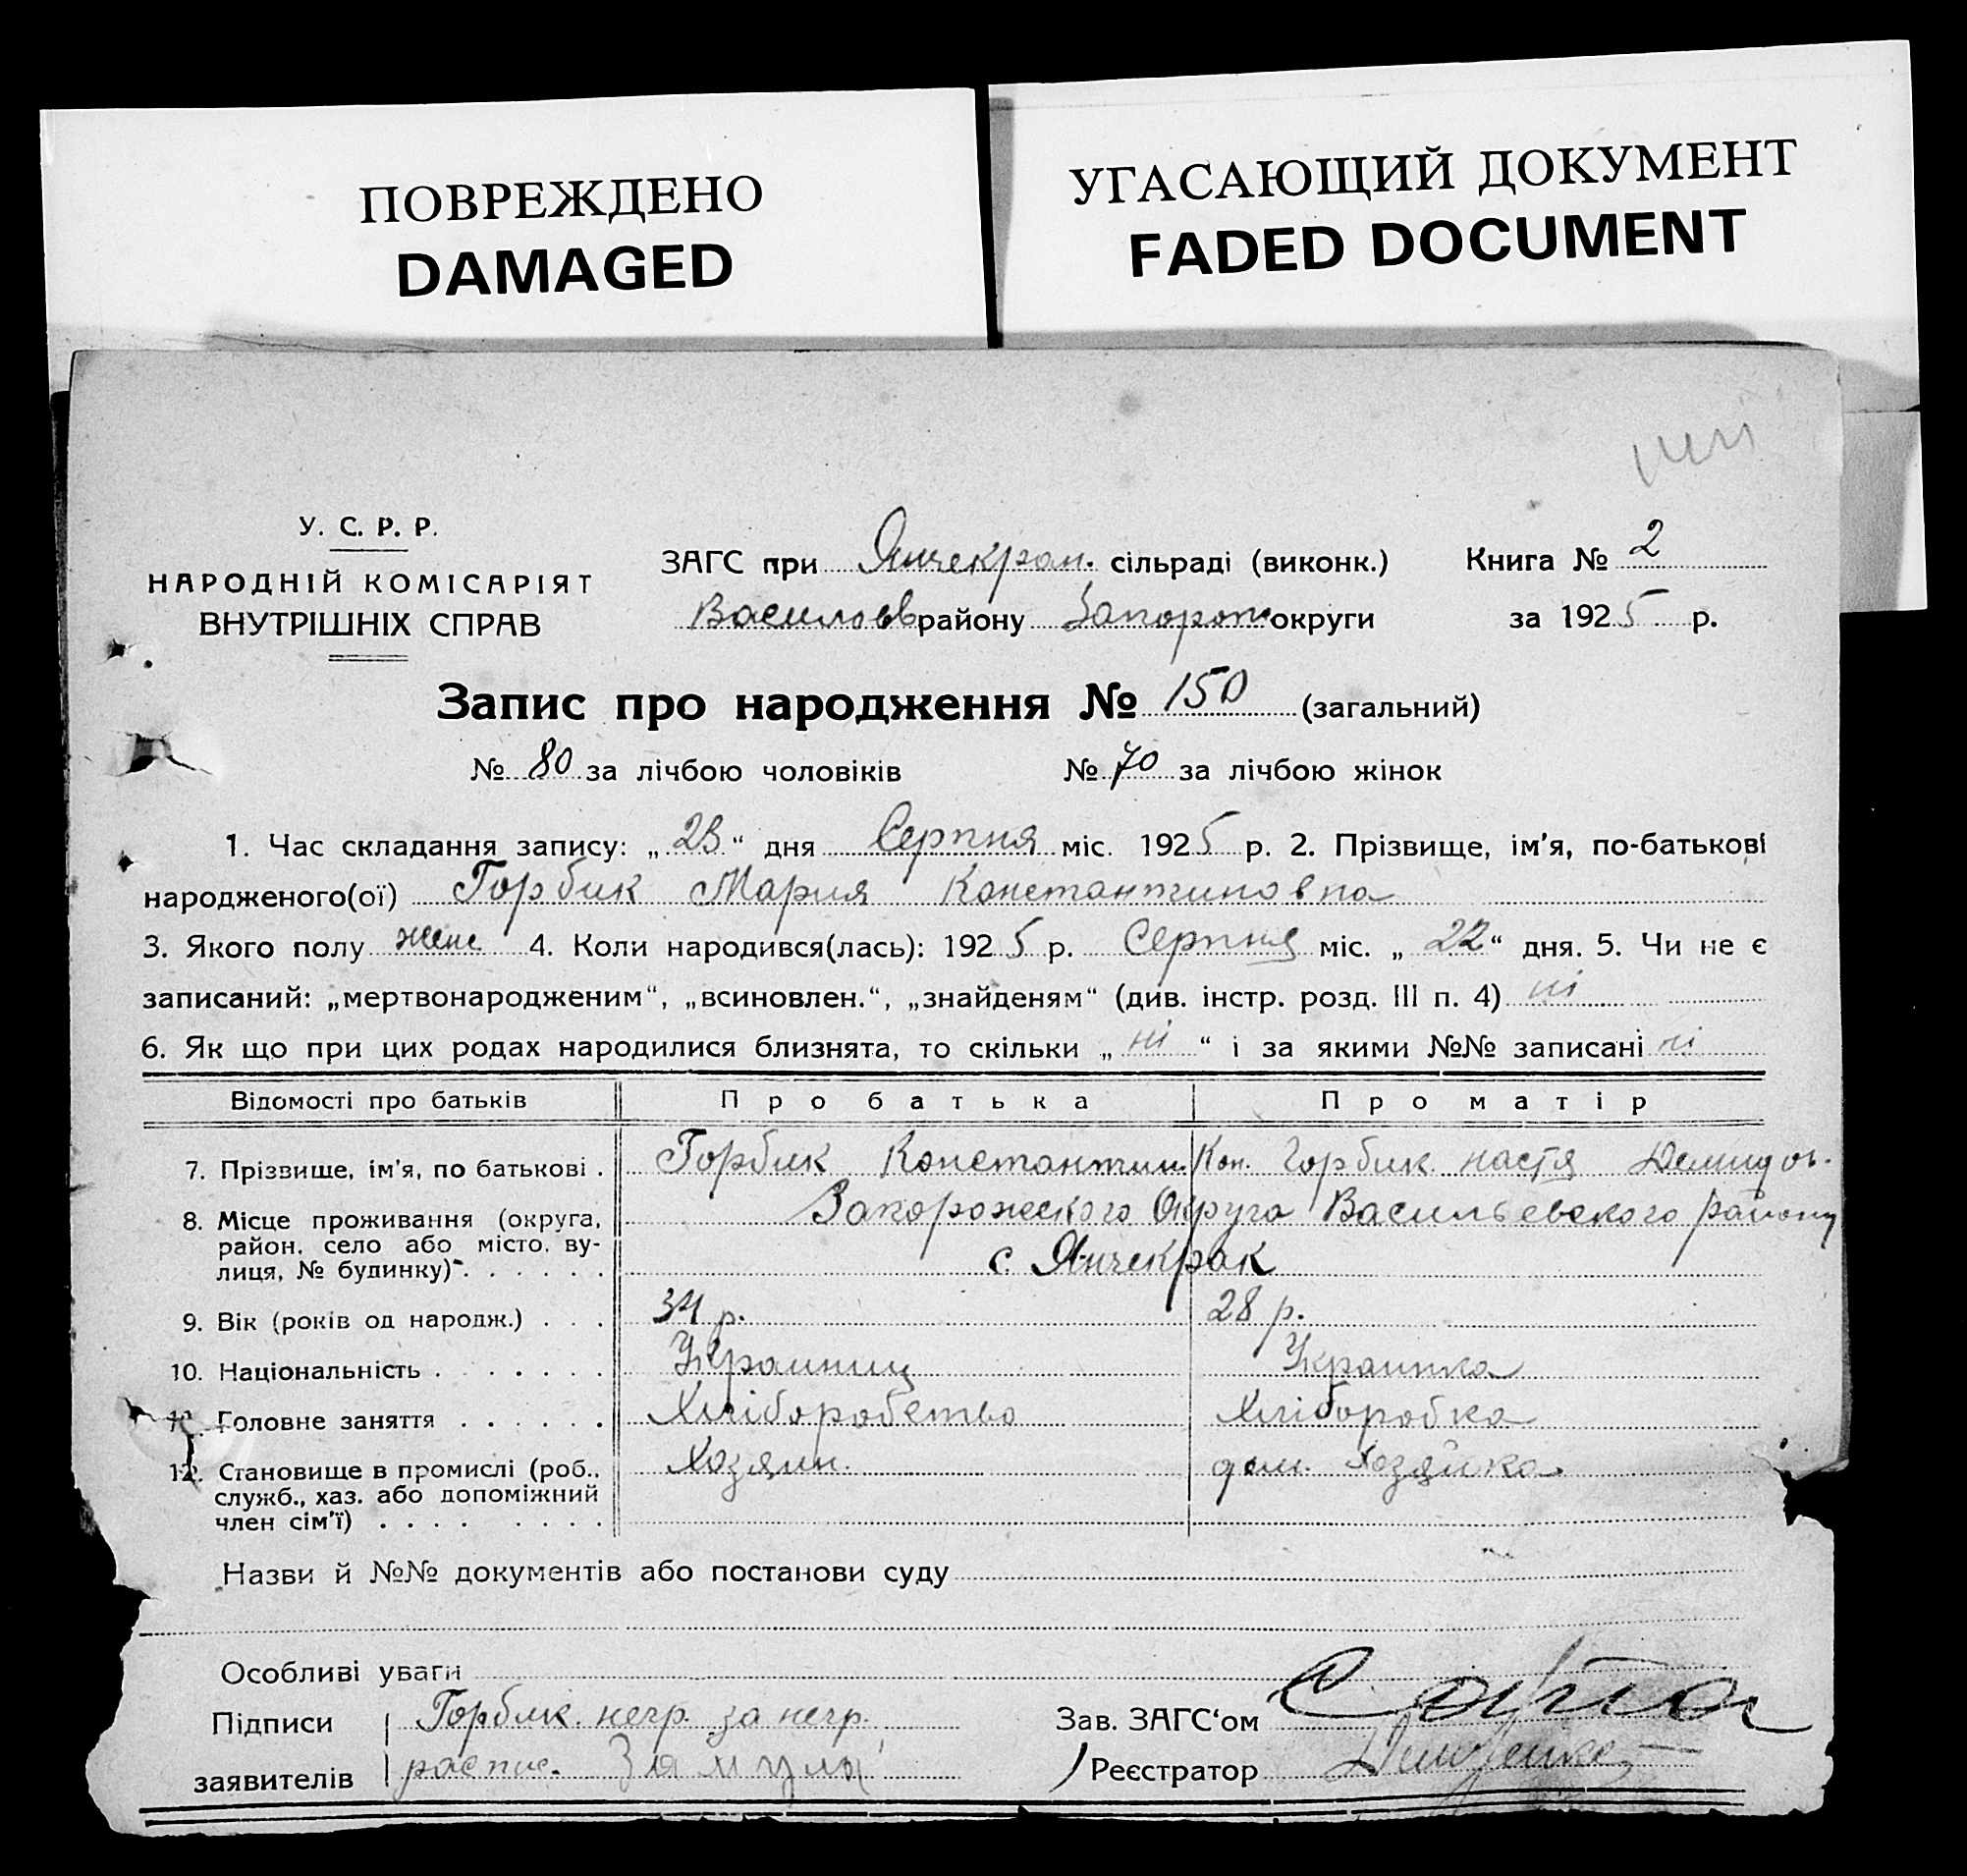 ПОВРЕЖДЕНО
DAMAGED
УГАСАЮЩИЙ ДОКУМЕНТ
FADED DOCUMENT
У. С. Р. Р.
НАРОДНІЙ КОМІСАРІЯТ
ВНУТРІШНІХ СПРАВ
ЗАГС при Янчекрак. сільраді (виконк.) Книга № 2
Василевв району Запорож округи за 1925 р.
Запис про народження № 150 (загальний)
№ 80 за лічбою чоловіків № 70 за лічбою жінок
1. Час складання запису: „23“ дня Серпня міс. 1925 р. 2. Прізвище, ім'я, по-батькові
народженого(ої) Горбик Мария Константиновна
3. Якого полу женс 4. Коли народився(лась): 1925 р. Серпня міс. „22“ дня. 5. Чи не є
записаний: „мертвонародженим“, „всиновлен.“, „знайденям“ (див. інстр. розд. III п. 4) ні
6. Як що при цих родах народилися близнята, то скільки „ні“ і за якими №№ записані ні
Відомості про батьків Про батька Про матір
7. Прізвище, ім'я, по батькові . Горбик Константин Кон. Горбик Настя Демидов.
8. Місце проживання (округа, Запорожского Округа Васильевского району
район, село або місто, ву-
лиця, № будинку) . . . . . с. Янчекрак
9. Вік (років од народж.) . . . 34 р. 28 р.
10. Національність . . . . . . . Украинец Украинка
11. Головне заняття . . . . . Хліборобство Хліборобка
12. Становище в промислі (роб., Хозяин. дом. Хозяйка
служб., хаз. або допоміжний
член сім'ї) . . . . . . . .
Назви й №№ документів або постанови суду
Особливі уваги
Підписи Горбик. негр. за негр. Зав. ЗАГС‘ом
заявителів распис. Реєстратор